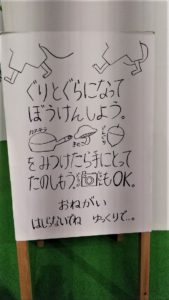 ぐりとぐらになって
ぼうけんしよう。
カステラ きのこ どんぐり
をみつけたら手にとって
たのしもう。もOK。
おねがい
はしらないでね ゆっくりで…。